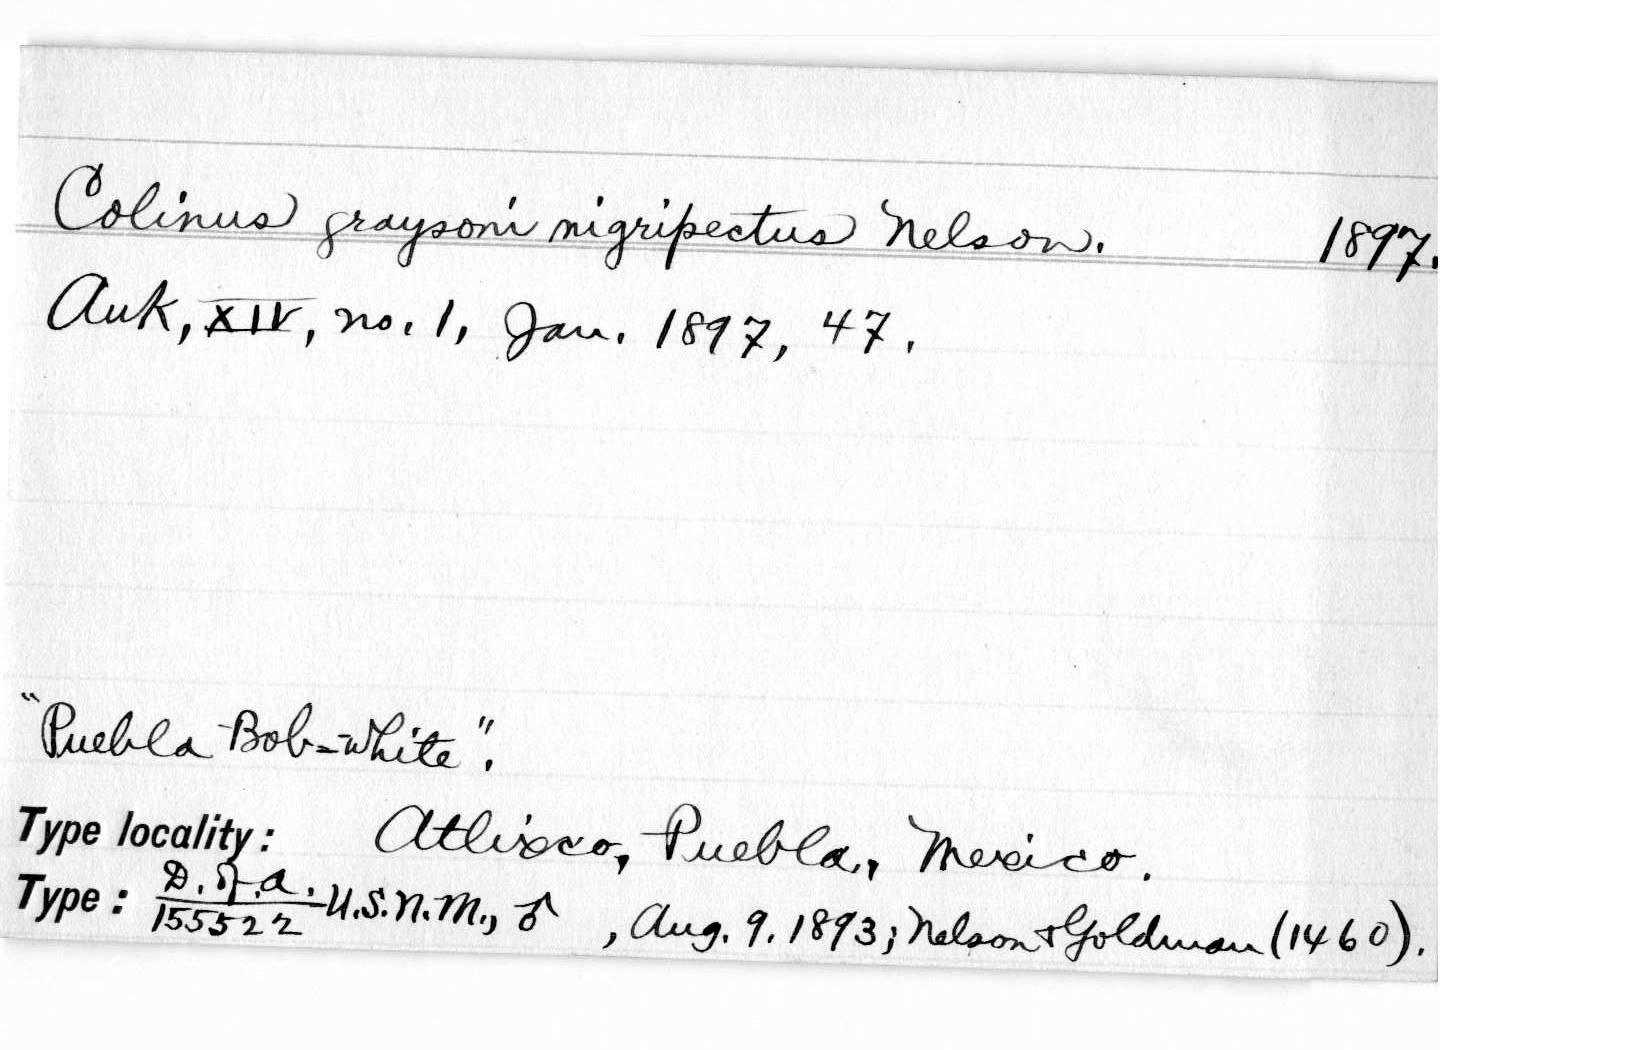 Colinus graysoni nigripectus Nelson. 1897.
Auk, XIV, no. 1, Jan. 1897, 47.
"Puebla Bob-white".
Type locality: Atlixco, Puebla, Mexico.
Type: D. of A. 155522 U.S.N.M., ♂ , Aug. 9, 1893; Nelson & Goldman (1460).